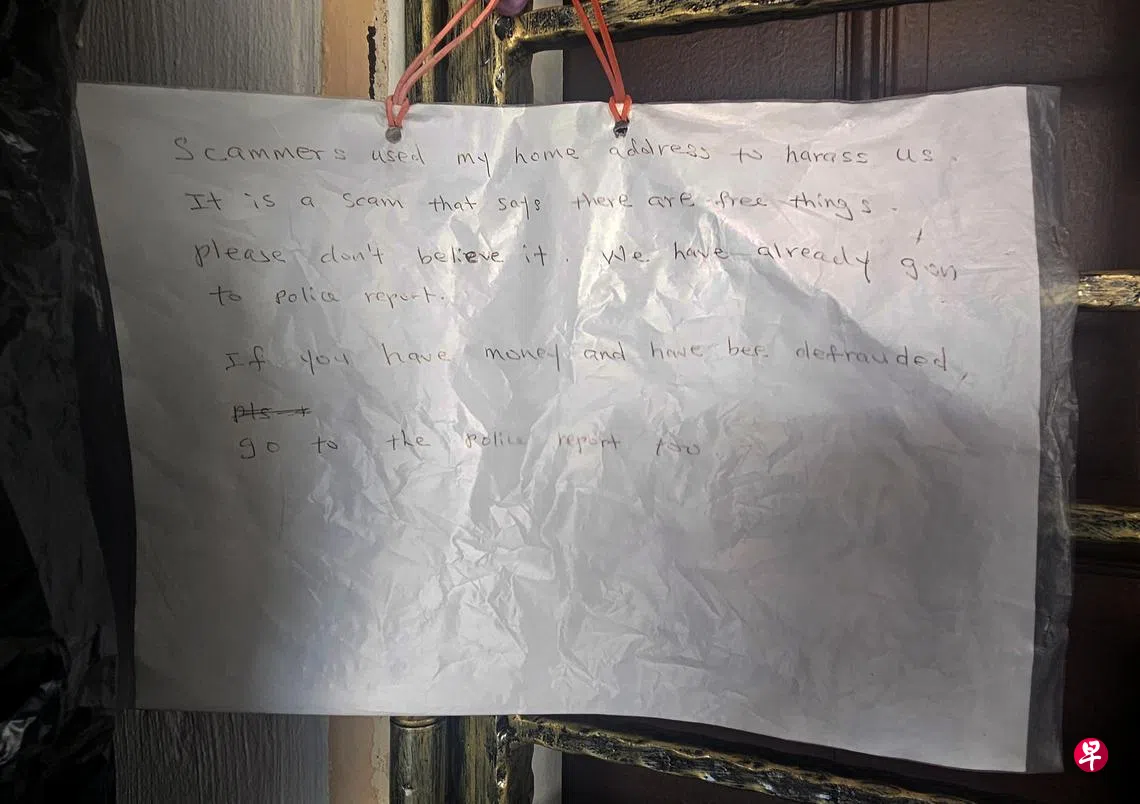 Scammers used my home address to harass us.
It is a scam that says there are free things.
please don't believe it. We have already gon
to police report.
If you have money and have bee defrauded,
pls
go to the police report too
早